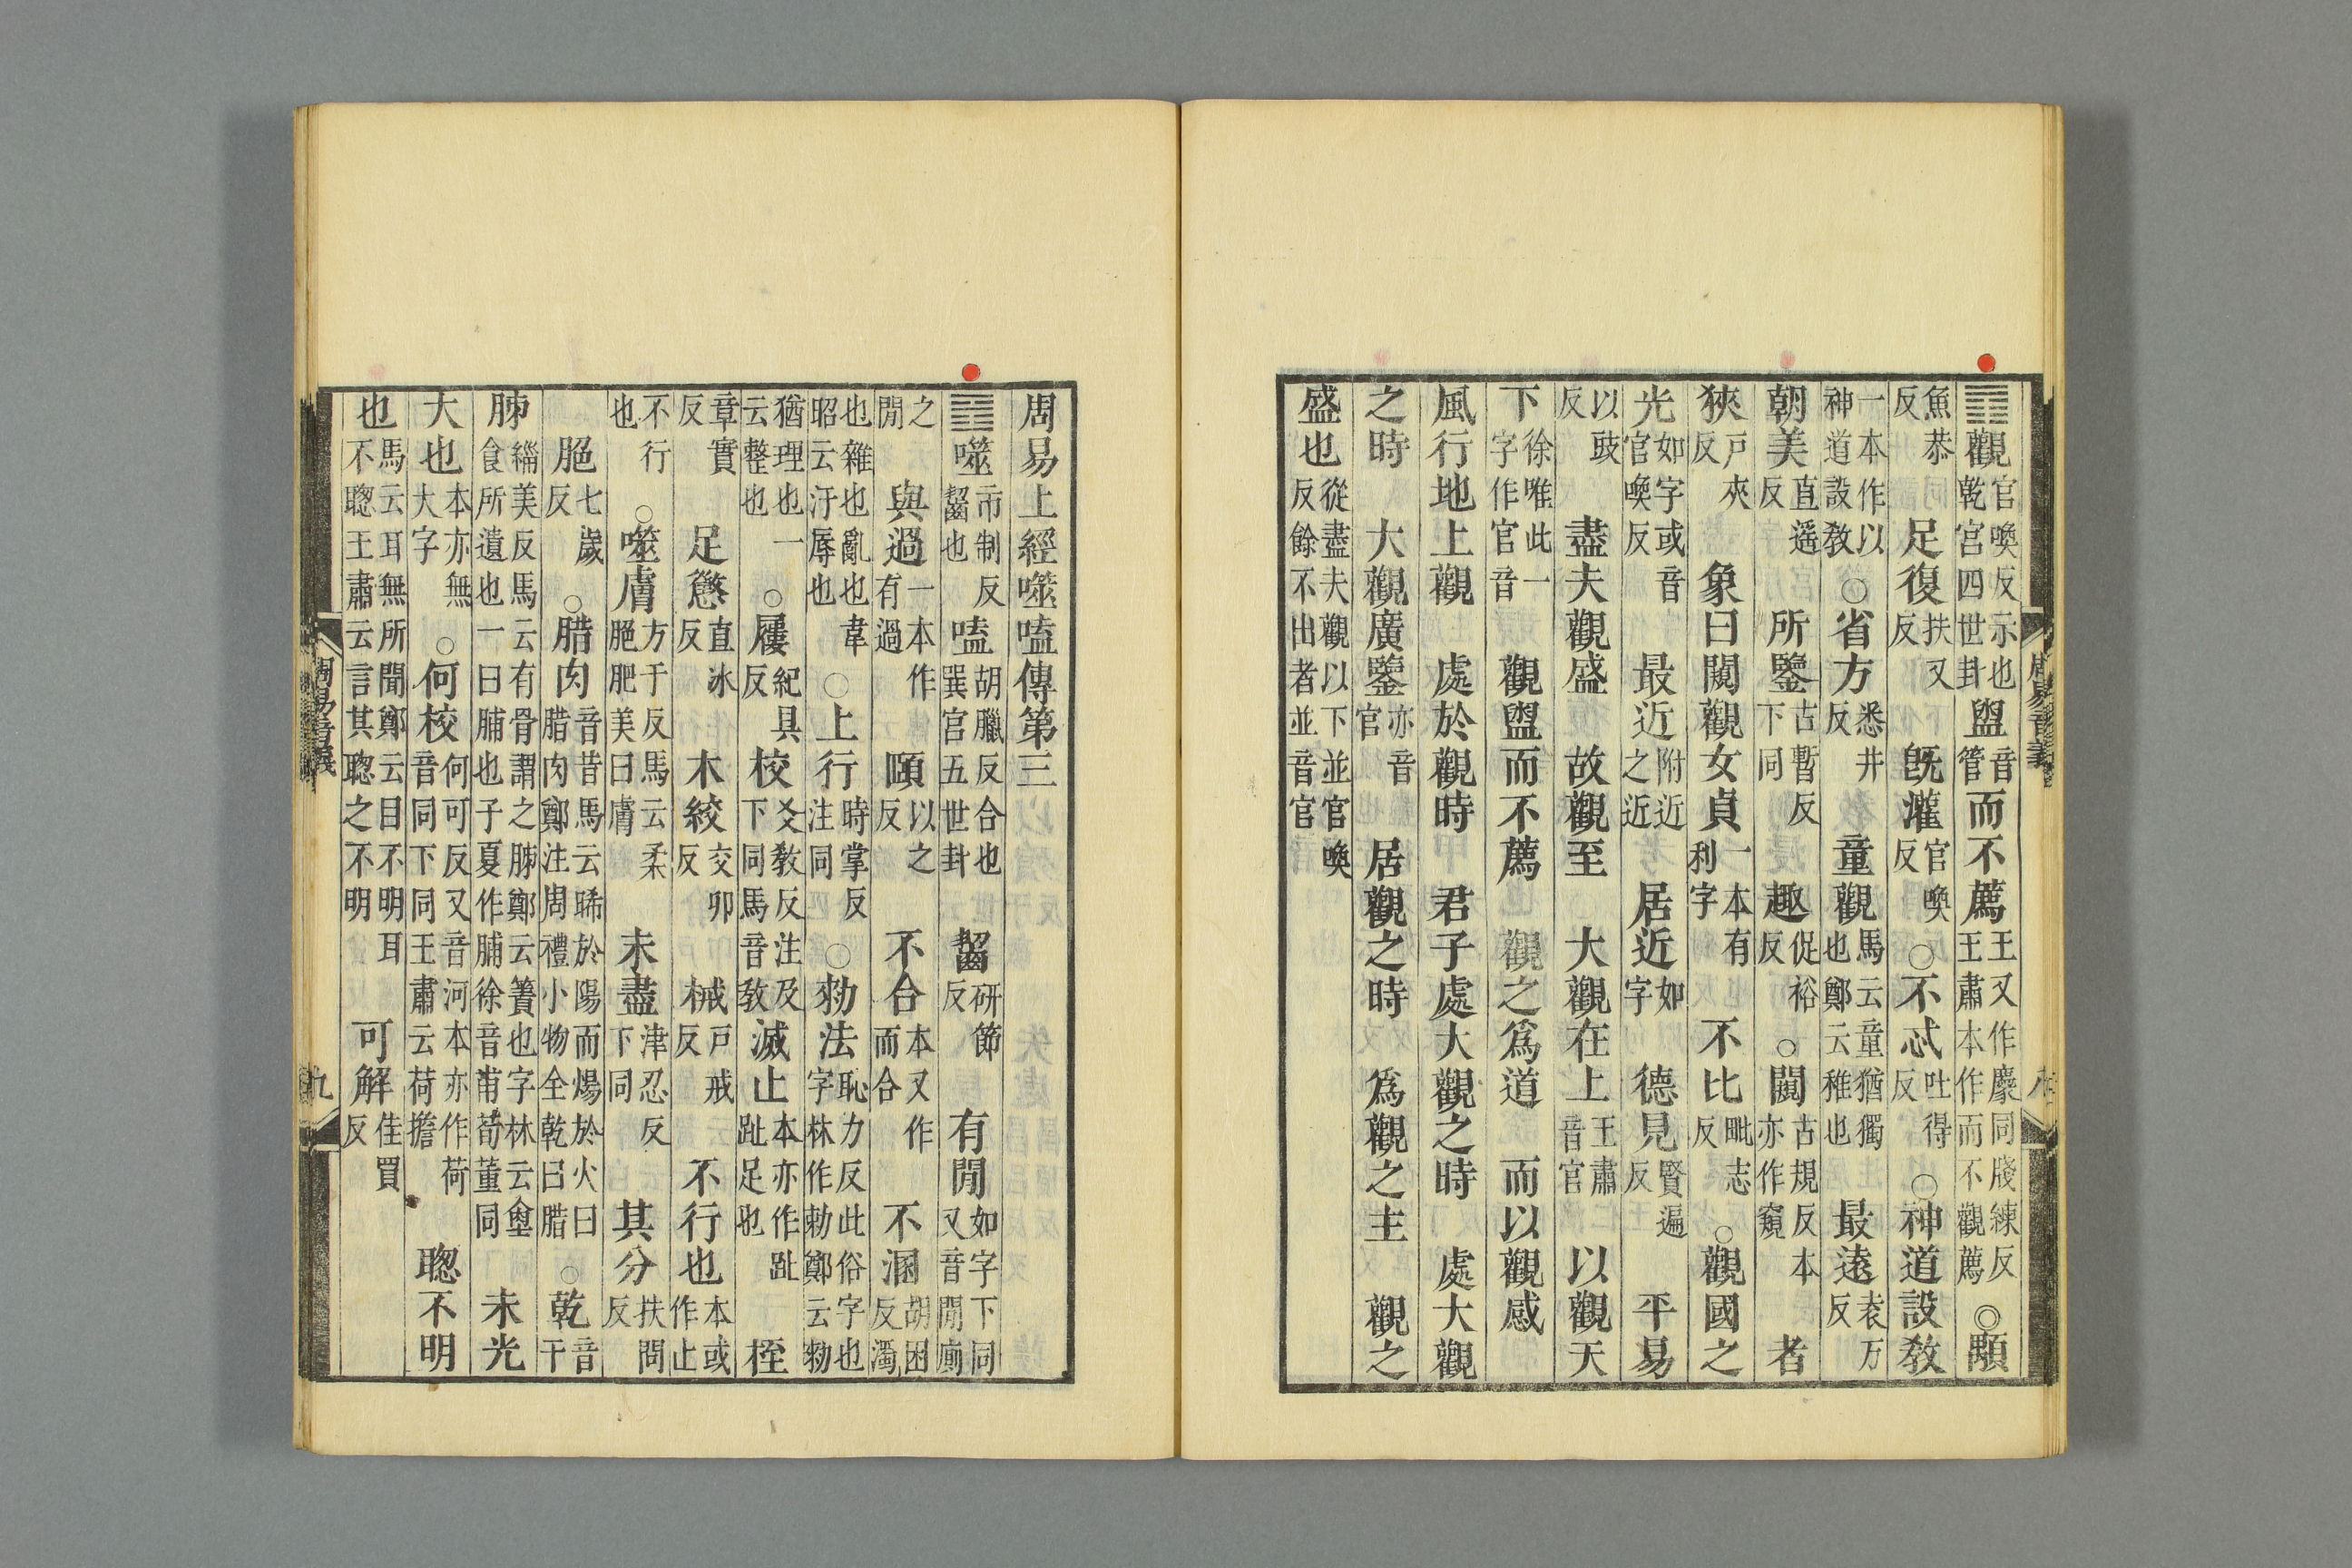 ䷓觀官喚反示也乾宮四世卦盥音管而不薦王又作䕌同牋練反王肅本作而不觀薦◎顒
魚恭反足復扶又反旣灌官喚反○不忒吐得反○神道設敎
一本作以神道設敎○省方悉井反童觀馬云童猶獨也鄭云稚也最遠袁万反
朝美直遥反所鑒古暫反下同趣促裕反○闚古規反本亦作窺者
狹戶夾反象曰闚觀女貞一本有利字不比毗志反○觀國之
光如字或音官喚反最近附近之近居近如字德見賢遍反平易
以豉反盡夫觀盛故觀至大觀在上王肅音官以觀天
下徐唯此一字作官音觀盥而不薦觀之爲道而以觀感
風行地上觀處於觀時君子處大觀之時處大觀
之時大觀廣鑒亦音官居觀之時爲觀之主觀之
盛也從盡夫觀以下並官喚反餘不出者並音官
周易音義
八
周易上經噬嗑傳第三
䷔噬市制反齧也嗑胡臘反合也巽宮五世卦齧研節反有閒如字下同又音閒廁
之閒與過一本作有過頤以之反不合本又作而合不溷胡困反濁
也雜也亂也韋昭云汙辱也○上行時掌反注同○勑法恥力反此俗字也字林作勅鄭云勑
猶理也一云整也○屨紀具反校爻敎反注及下同馬音敎滅止本亦作趾趾足也桎
章實反足懲直冰反木絞交卯反械戶戒反不行也本或作止
不行也○噬膚方于反馬云柔脆肥美曰膚未盡津忍反下同其分扶問反
脆七歲反○腊肉音昔馬云晞於陽而煬於火曰腊肉鄭注周禮小物全乾曰腊○乾音干
胏緇美反馬云有骨謂之胏鄭云簀也字林云㿼食所遺也一曰脯也子夏作脯徐音甫荀董同未光
大也本亦無大字○何校何可反又音河本亦作荷音同下同王肅云荷擔聦不明
也馬云耳無所聞鄭云目不明耳不聦王肅云言其聦之不明可解佳買反
周易音義
九